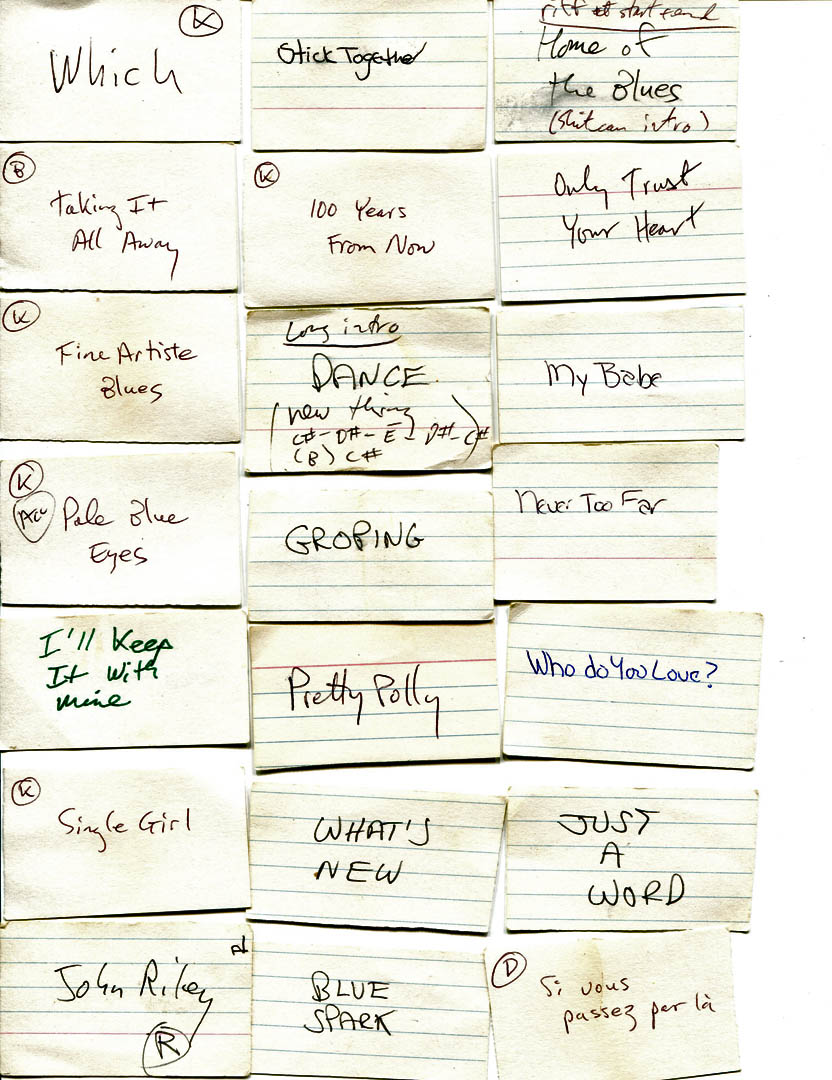 K
Which
Stick Together
riff at start & end
Home of
the Blues
(shitcan intro)
B
Taking It
All Away
K
100 Years
From Now
Only Trust
Your Heart
K
Fine Artiste
Blues
Long intro
DANCE
(new thing
C# - D# - E - D# - C#
(B) C#
)
My Babe
K
Acc
Pale Blue
Eyes
GROPING
Never Too Far
I'll Keep
It With
mine
Pretty Polly
Who do You Love?
K
Single Girl
WHAT'S
NEW
JUST
A
WORD
John Riley
R
BLUE
SPARK
D
Si vous
passez par là